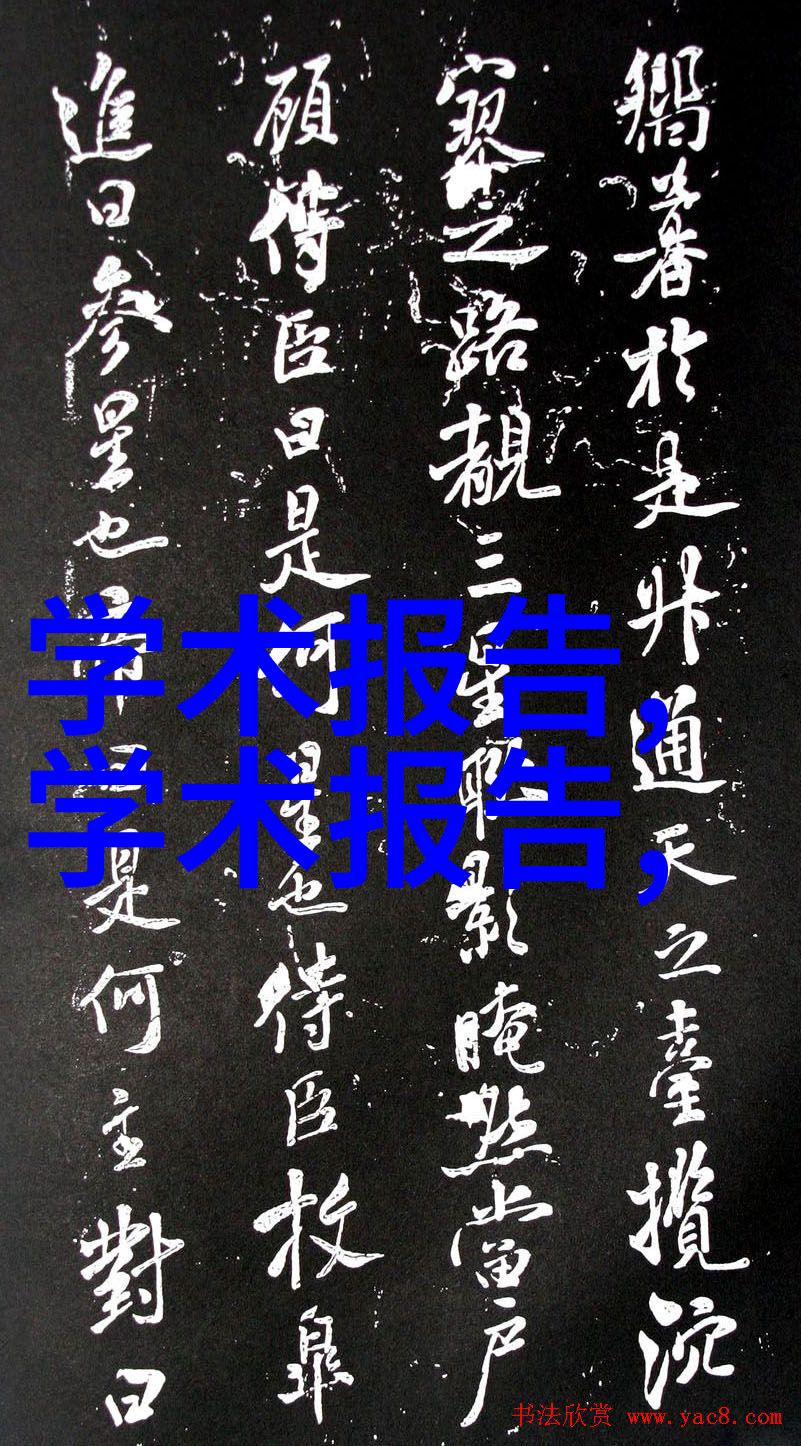 於是升通天之臺攬泬
寥之路覩三星耿影晻然當户
顧侍臣曰是何星也侍臣枚皋
進曰參星也帝曰是何主對曰
学术报告,
学术报告,
书法欣赏 www.yac8.com